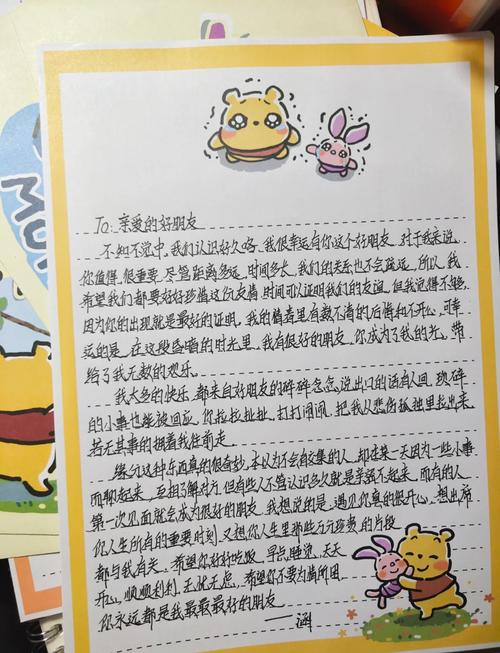 To: 亲爱的好朋友
不知不觉中,我们认识好久了哈.我很幸运有你这个好朋友.对于我来说,
你值得,很重要.尽管距离多远,时间多长,我们的关系也不会疏远,所以,我
希望我们都要好好珍惜这份友情,时间可以证明我们的友谊,但我记得不够,
因为你的出现就是最好的证明,我的情绪里有数不清的后悔和不开心,可幸
运的是,在这段昏暗的时光里,我有很好的朋友,你成为了我的光,带
给了我无数的欢乐.
我太多的快乐,都来自好朋友的碎碎念念,说出口的话有人回,琐碎
的小事也能被回应,你拉拉扯扯,打打闹闹,把我从悲伤孤独里拉出来,
若无其事的拥着我往前走.
缘分这种东西真的很奇妙,本以为不会有交集的人,却在某一天因为一些小事
而聊起来,互相了解对方,但有些人不管认识多久就是亲密不起来,而有的人
第一次见面就会成为很好的朋友,我想说的是,遇见你真的很开心,想出席
你人生所有的重要时刻,又想你人生里那些力元琐爱的片段
都与我有关,希望你好好吃饭,早点睡觉,天天
开心,顺顺利利,无忧无虑,希望你不要为情所困
你永远都是我最最最好的朋友
——涵
MO